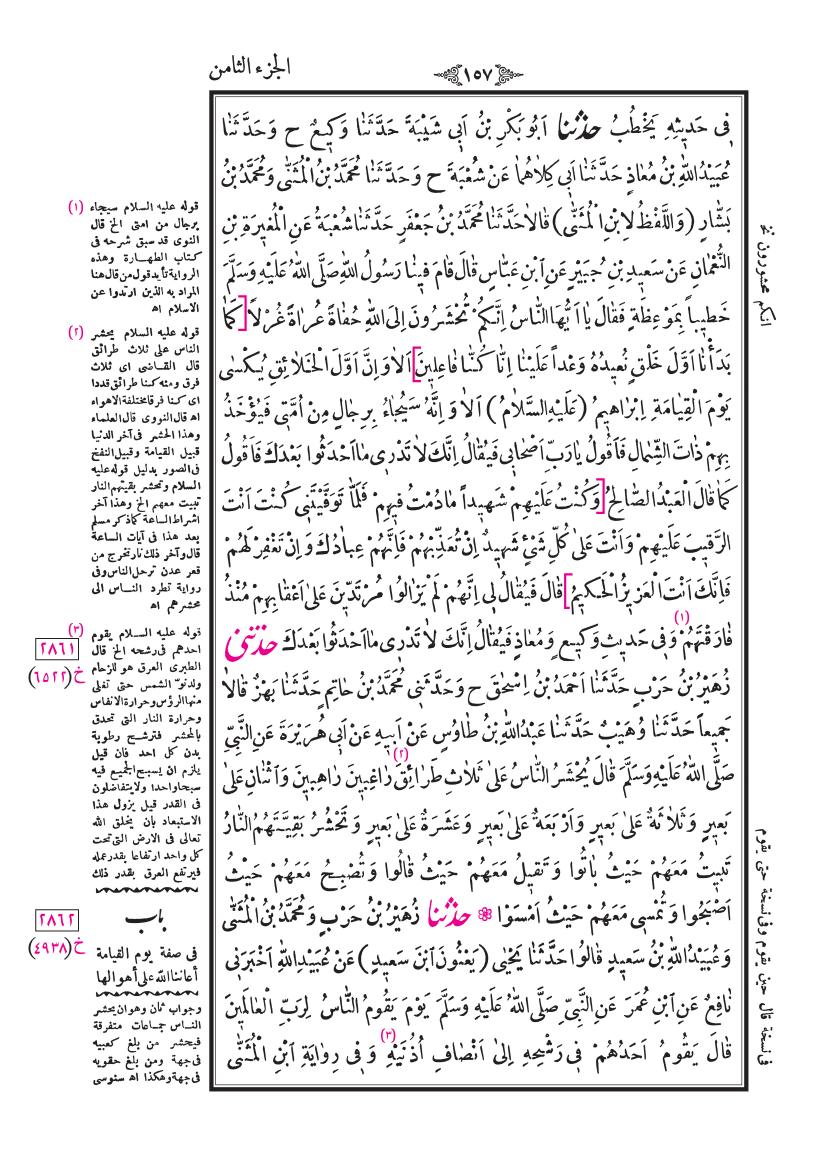 الجزء الثامن
﴿١٥٧﴾
فِى حَدِيثِهِ يَخْطُبُ حَدَّثَنَا اَبُو بَكْرِ بْنُ اَبِى شَيْبَةَ حَدَّثَنَا وَكِيعٌ ح وَحَدَّثَنَا
عُبَيْدُ اللّٰهِ بْنُ مُعَاذٍ حَدَّثَنَا اَبِى كِلَاهُمَا عَنْ شُعْبَةَ ح وَحَدَّثَنَا مُحَمَّدُ بْنُ الْمُثَنّٰى وَمُحَمَّدُ بْنُ
بَشَّارٍ (وَاللَّفْظُ لِابْنِ الْمُثَنّٰى) قَالَا حَدَّثَنَا مُحَمَّدُ بْنُ جَعْفَرٍ حَدَّثَنَا شُعْبَةُ عَنِ الْمُغِيرَةِ بْنِ
النُّعْمَانِ عَنْ سَعِيدِ بْنِ جُبَيْرٍ عَنِ ابْنِ عَبَّاسٍ قَالَ قَامَ فِينَا رَسُولُ اللّٰهِ صَلَّى اللّٰهُ عَلَيْهِ وَسَلَّمَ
خَطِيباً بِمَوْعِظَةٍ فَقَالَ يَا اَيُّهَا النَّاسُ اِنَّكُمْ تُحْشَرُونَ اِلَى اللّٰهِ حُفَاةً عُرَاةً غُرْلاً [كَمَا
بَدَأْنَا اَوَّلَ خَلْقٍ نُعِيدُهُ وَعْداً عَلَيْنَا اِنَّا كُنَّا فَاعِلِينَ] اَلَا وَاِنَّ اَوَّلَ الْخَلَائِقِ يُكْسٰى
يَوْمَ الْقِيَامَةِ اِبْرَاهِيمُ (عَلَيْهِ السَّلَامُ) اَلَا وَاِنَّهُ سَيُجَاءُ بِرِجَالٍ مِنْ اُمَّتِى فَيُؤْخَذُ
بِهِمْ ذَاتَ الشِّمَالِ فَاَقُولُ يَا رَبِّ اَصْحَابِى فَيُقَالُ اِنَّكَ لَا تَدْرِى مَا اَحْدَثُوا بَعْدَكَ فَاَقُولُ
كَمَا قَالَ الْعَبْدُ الصَّالِحُ [وَكُنْتُ عَلَيْهِمْ شَهِيداً مَا دُمْتُ فِيهِمْ فَلَمَّا تَوَفَّيْتَنِى كُنْتَ اَنْتَ
الرَّقِيبَ عَلَيْهِمْ وَاَنْتَ عَلىٰ كُلِّ شَىْءٍ شَهِيدٌ اِنْ تُعَذِّبْهُمْ فَاِنَّهُمْ عِبَادُكَ وَاِنْ تَغْفِرْ لَهُمْ
فَاِنَّكَ اَنْتَ الْعَزِيزُ الْحَكِيمُ] قَالَ فَيُقَالُ لِى اِنَّهُمْ لَمْ يَزَالُوا مُرْتَدِّينَ عَلىٰ اَعْقَابِهِمْ مُنْذُ
فَارَقْتَهُمْ (١) وَفِى حَدِيثِ وَكِيعٍ وَمُعَاذٍ فَيُقَالُ اِنَّكَ لَا تَدْرِى مَا اَحْدَثُوا بَعْدَكَ حَدَّثَنِى
زُهَيْرُ بْنُ حَرْبٍ حَدَّثَنَا اَحْمَدُ بْنُ اِسْحٰقَ ح وَحَدَّثَنِى مُحَمَّدُ بْنُ حَاتِمٍ حَدَّثَنَا بَهْزٌ قَالَا
جَمِيعاً حَدَّثَنَا وُهَيْبٌ حَدَّثَنَا عَبْدُ اللّٰهِ بْنُ طَاوُسٍ عَنْ اَبِيهِ عَنْ اَبِى هُرَيْرَةَ عَنِ النَّبِيِّ
صَلَّى اللّٰهُ عَلَيْهِ وَسَلَّمَ قَالَ يُحْشَرُ النَّاسُ عَلىٰ ثَلَاثِ طَرَائِقَ (٢) رَاغِبِينَ رَاهِبِينَ وَاثْنَانِ عَلىٰ
بَعِيرٍ وَثَلَاثَةٌ عَلىٰ بَعِيرٍ وَاَرْبَعَةٌ عَلىٰ بَعِيرٍ وَعَشَرَةٌ عَلىٰ بَعِيرٍ وَتَحْشُرُ بَقِيَّتَهُمُ النَّارُ
تَبِيتُ مَعَهُمْ حَيْثُ بَاتُوا وَتَقِيلُ مَعَهُمْ حَيْثُ قَالُوا وَتُصْبِحُ مَعَهُمْ حَيْثُ
اَصْبَحُوا وَتُمْسِى مَعَهُمْ حَيْثُ اَمْسَوْا ❁ حَدَّثَنَا زُهَيْرُ بْنُ حَرْبٍ وَمُحَمَّدُ بْنُ الْمُثَنّٰى
وَعُبَيْدُ اللّٰهِ بْنُ سَعِيدٍ قَالُوا حَدَّثَنَا يَحْيٰى (يَعْنُونَ ابْنَ سَعِيدٍ) عَنْ عُبَيْدِ اللّٰهِ اَخْبَرَنِى
نَافِعٌ عَنِ ابْنِ عُمَرَ عَنِ النَّبِيِّ صَلَّى اللّٰهُ عَلَيْهِ وَسَلَّمَ يَوْمَ يَقُومُ النَّاسُ لِرَبِّ الْعَالَمِينَ
قَالَ يَقُومُ اَحَدُهُمْ فِى رَشْحِهِ اِلىٰ اَنْصَافِ اُذُنَيْهِ (٣) وَفِى رِوَايَةِ ابْنِ الْمُثَنّٰى
(١) قوله عليه السلام سيجاء
برجال من امتى الخ قال
النوى قد سبق شرحه فى
كتاب الطهارة وهذه
الرواية تأيد قول من قال هنا
المراد به الذين ارتدوا عن
الاسلام اه
(٢) قوله عليه السلام يحشر
الناس على ثلاث طرائق
قال القاضى اى ثلاث
فرق ومنه كنا طرائق قددا
اى كنا فرقا مختلفة الاهواء
اه قال النووى قال العلماء
وهذا الحشر فى آخر الدنيا
قبيل القيامة وقبيل النفخ
فى الصور بدليل قوله عليه
السلام وتحشر بقيتهم النار
تبيت معهم الخ وهذا آخر
اشراط الساعة كما ذكر مسلم
بعد هذا فى آيات الساعة
قال وآخر ذلك نار تخرج من
قعر عدن ترحل الناس وفى
رواية تطرد الناس الى
محشرهم اه
(٣) قوله عليه السلام يقوم
احدهم فى رشحه الخ قال
الطبرى العرق هو للزحام
ولدنوّ الشمس حتى تغلى
منها الرؤس وحرارة الانفاس
وحرارة النار التى تحدق
بالمحشر فترشح رطوبة
بدن كل احد فان قيل
يلزم ان يسبح الجميع فيه
سبحا واحدا ولا يتفاضلون
فى القدر قيل يزول هذا
الاستبعاد بان يخلق الله
تعالى فى الارض التى تحت
كل واحد ارتفاعا بقدر عمله
فيرتفع العرق بقدر ذلك
باب
فى صفة يوم القيامة
أعاننا الله على أهوالها
وجواب ثان وهو ان يحشر
الناس جماعات متفرقة
فيحشر من بلغ كعبيه
فى جهة ومن بلغ حقويه
فى جهة وهكذا اه سنوسى
٢٨٦١
خ (٦٥٢٢)
٢٨٦٢
خ (٤٩٣٨)
انكم محشورون نخ
فى نسخة قال حين يقوم وفى نسخة حتى يقوم